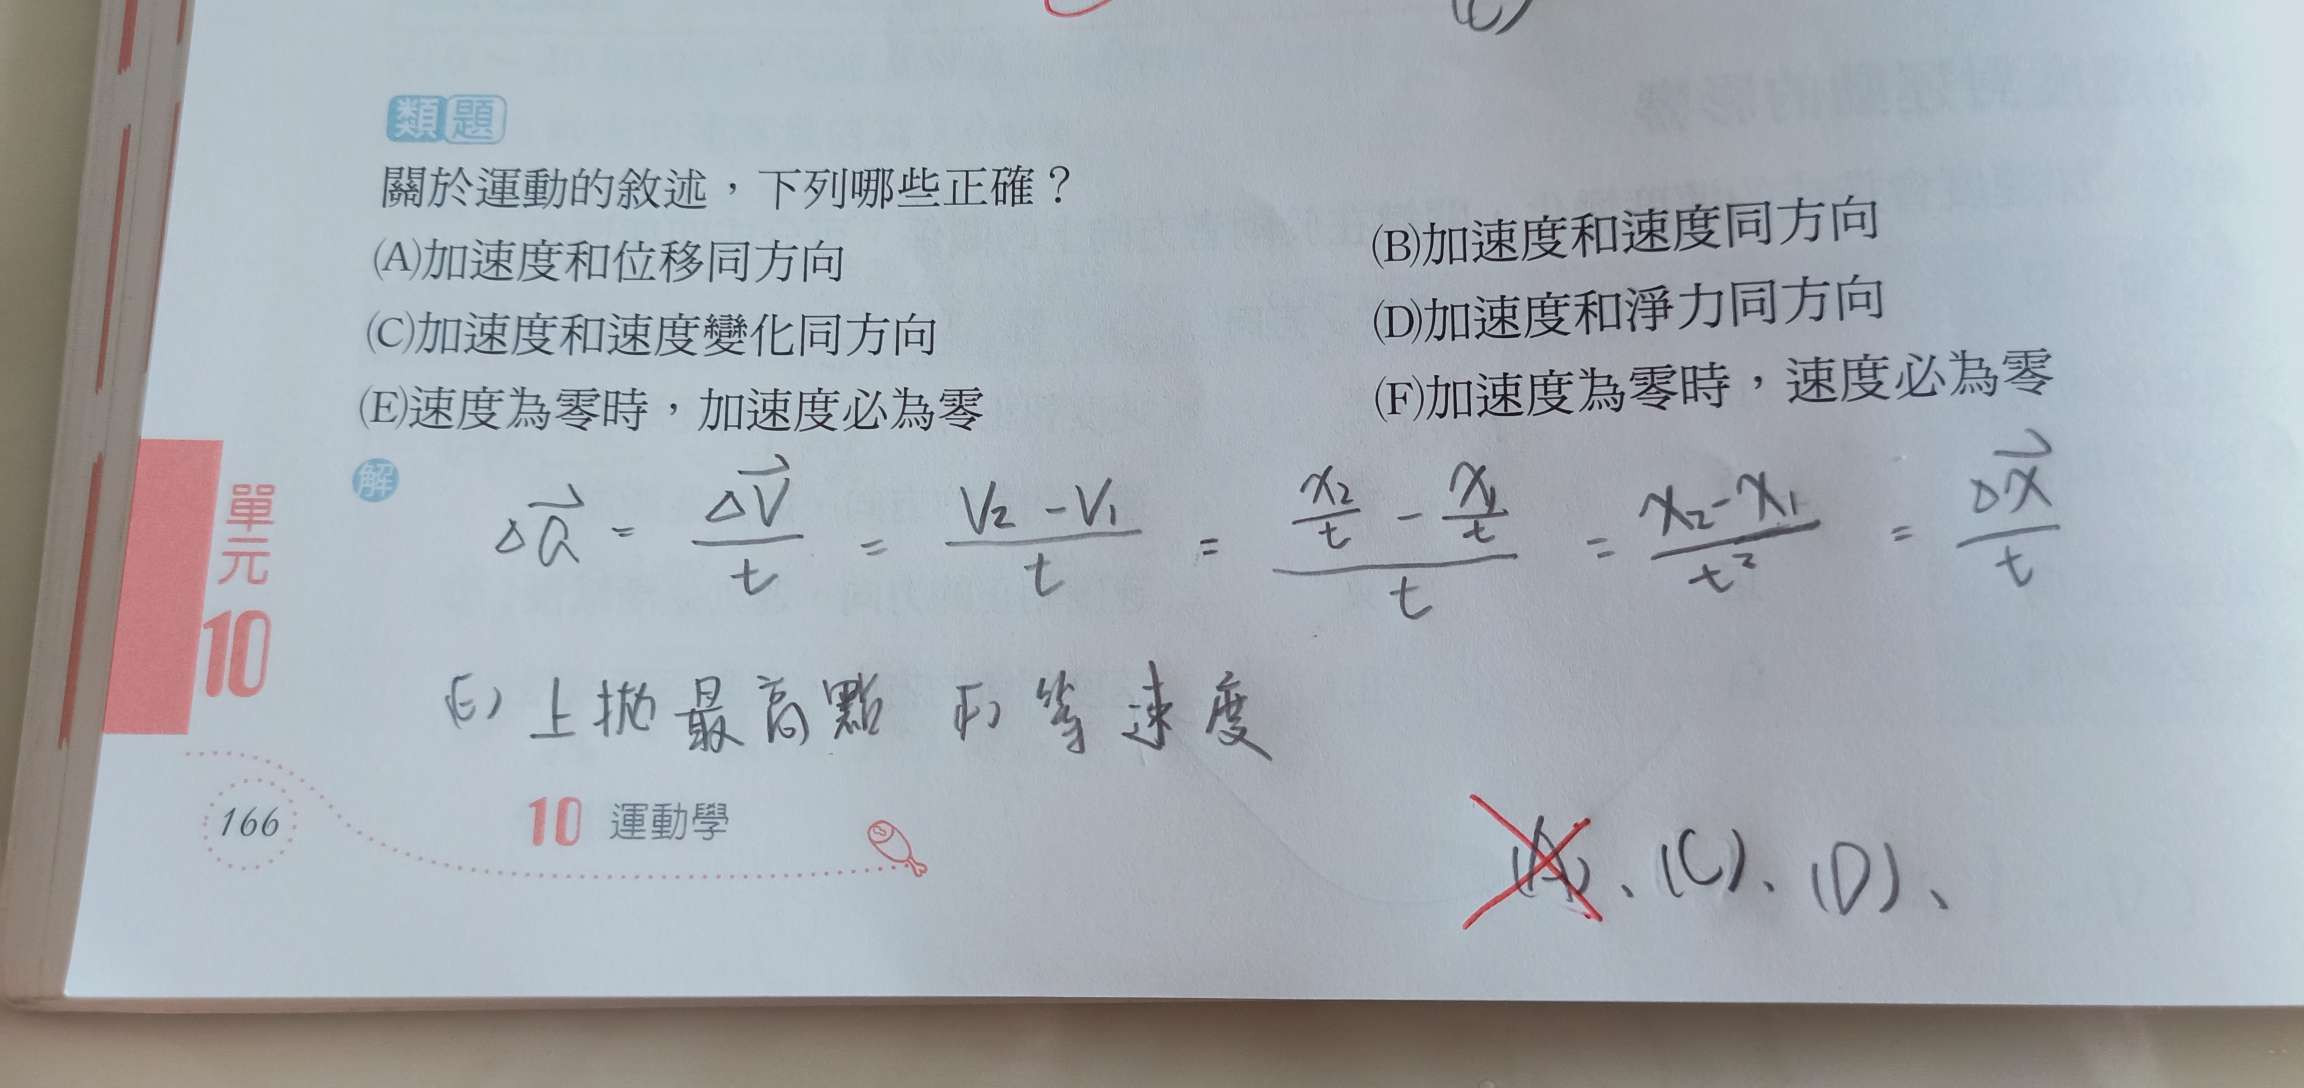 (C)
類題
關於運動的敘述，下列哪些正確？
(A)加速度和位移同方向
(B)加速度和速度同方向
(C)加速度和速度變化同方向
(D)加速度和淨力同方向
(E)速度為零時，加速度必為零
(F)加速度為零時，速度必為零
解
△a⃗ = △V⃗/t = (V₂-V₁)/t = (x₂/t - x₁/t)/t = (x₂-x₁)/t² = △x⃗/t
(E) 上拋最高點 (F) 等速度
單元10
166
10 運動學
(A)、(C)、(D)、